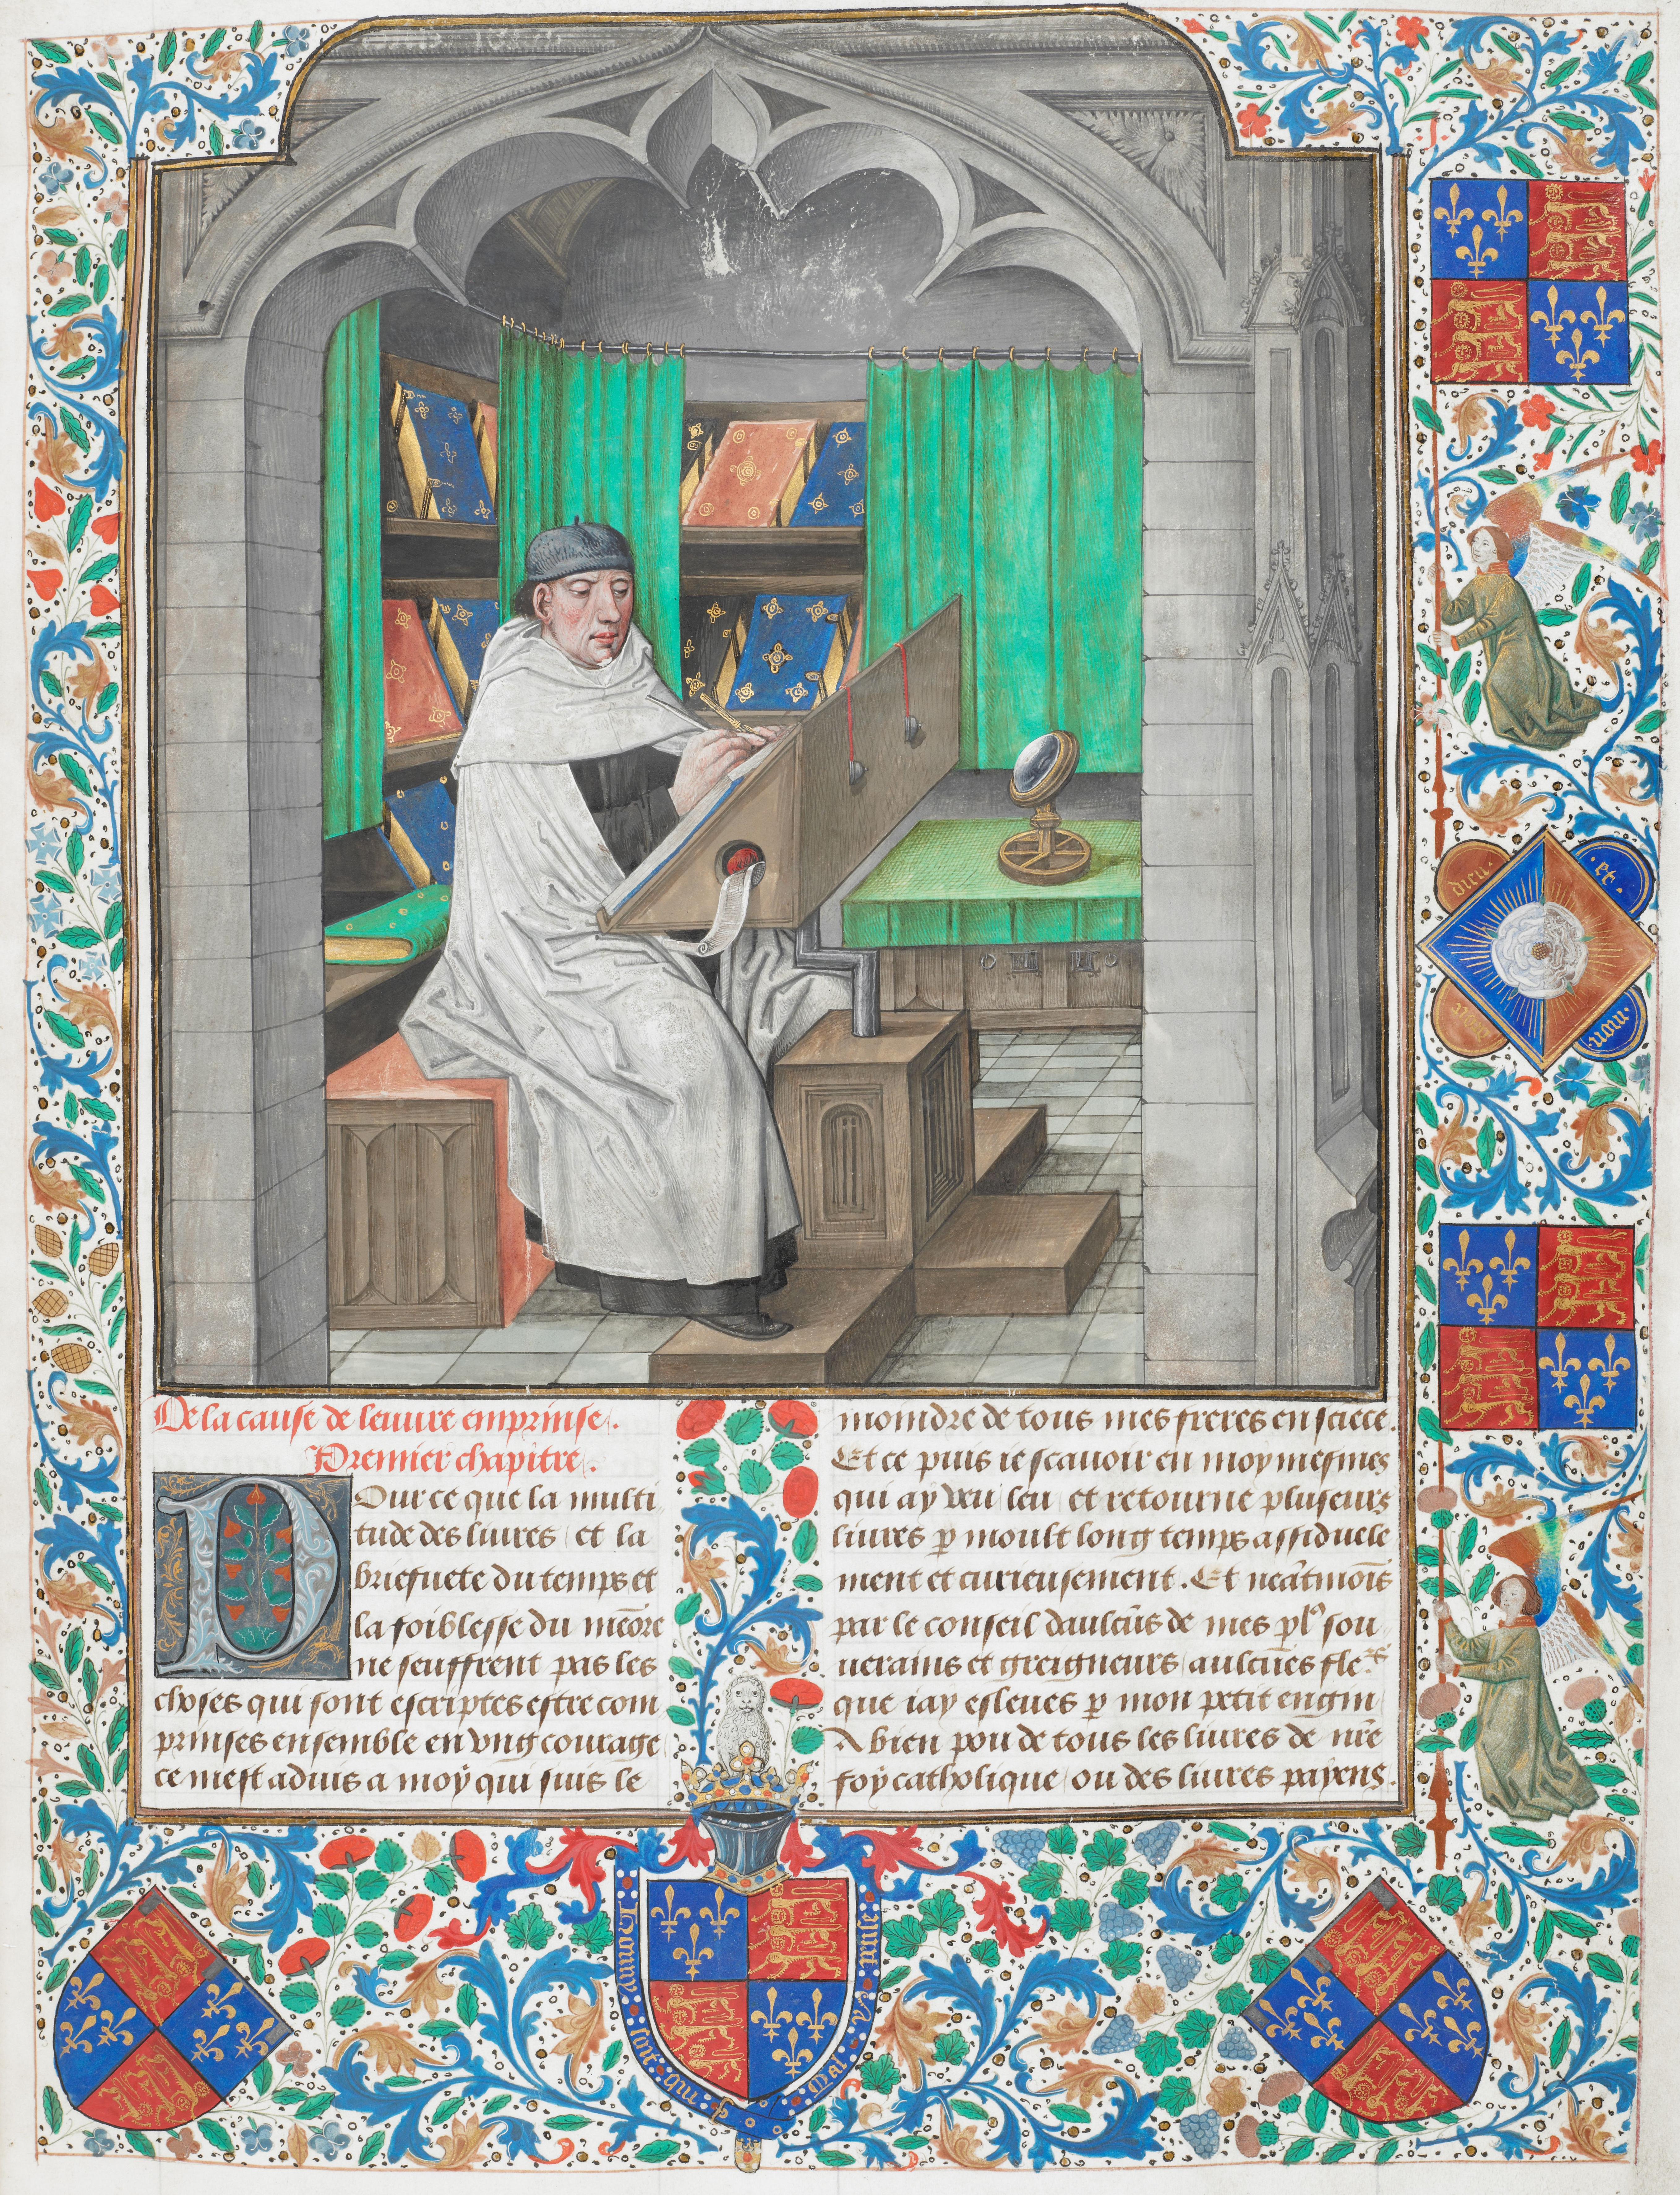 De la cause de leuure emprinse.
Premier chapitre.
Pour ce que la multi
tude des liures et la
briefuete du temps et
la foiblesse du memoire
ne seuffrent pas les
choses qui sont escriptes estre com
prinses ensemble en vng courage
ce mest aduis a moy qui suis le
moindre de tous mes freres en sciēce.
Et ce puis ie scauoir en moy mesmes
qui ay veu leu et retourne pluseurs
liures p moult long temps assiduele
ment et curieusement. Et neātmois
par le conseil daulcūs de mes sou
uerains et greigneurs aulcūes
que iay esleues p mon petit engin
A bien pou de tous les liures de nr̄e
foy catholique ou des liures payens.
dieu. et.
mon
Honny soit qui Mal y pense